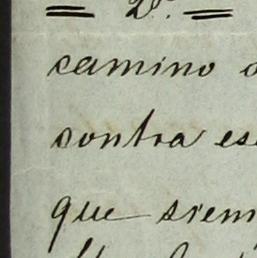 = 2º. =
camino
contra
que siem